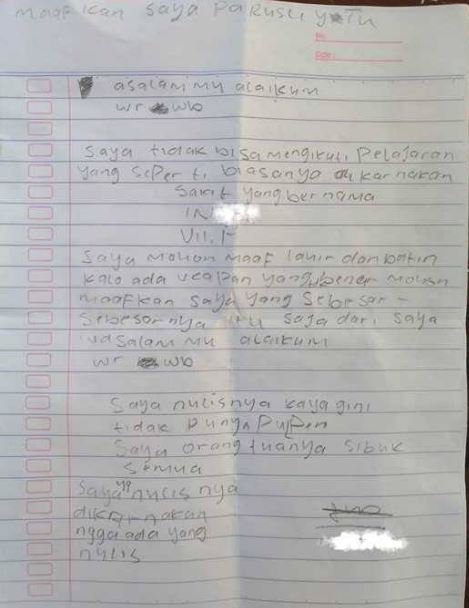 maaf kan saya Pa Rusli yaTu
No:
Date:
asalam mu alaikum
wr wb
Saya tidak bisa mengikuti Pelajaran
yang seperti biasanya di karnakan
Sakit yang bernama
IN
VII.
Saya mohon maaf lahir dan batin
kalo ada ucapan yang bener mohon
maafkan saya yang Sebesar -
Sebesarnya itu saja dari saya
wasalam mu alaikum
wr wb
Saya nulisnya kaya gini
tidak punya Pulpen
Saya orang tuanya sibuk
semua
Saya yg nulis nya
dikarnakan
ngga ada yang
nulis